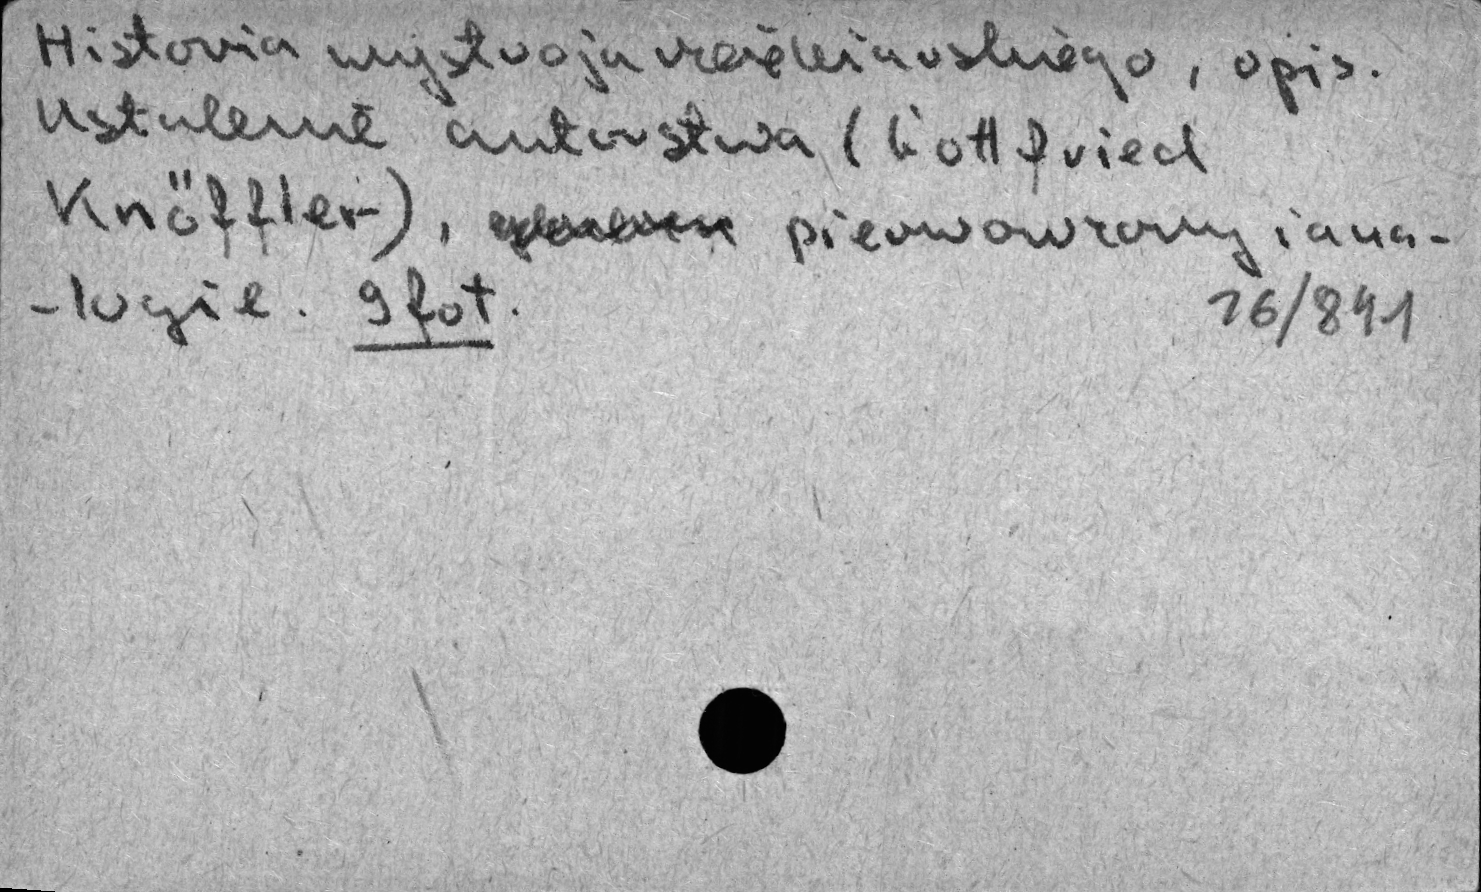 Historia wystroju rzeźbiarskiego, opis.
Ustalenie autorstwa (Gottfried
Knöffler), pierwowzory i ana-
-logie. 9 fot. 16/841